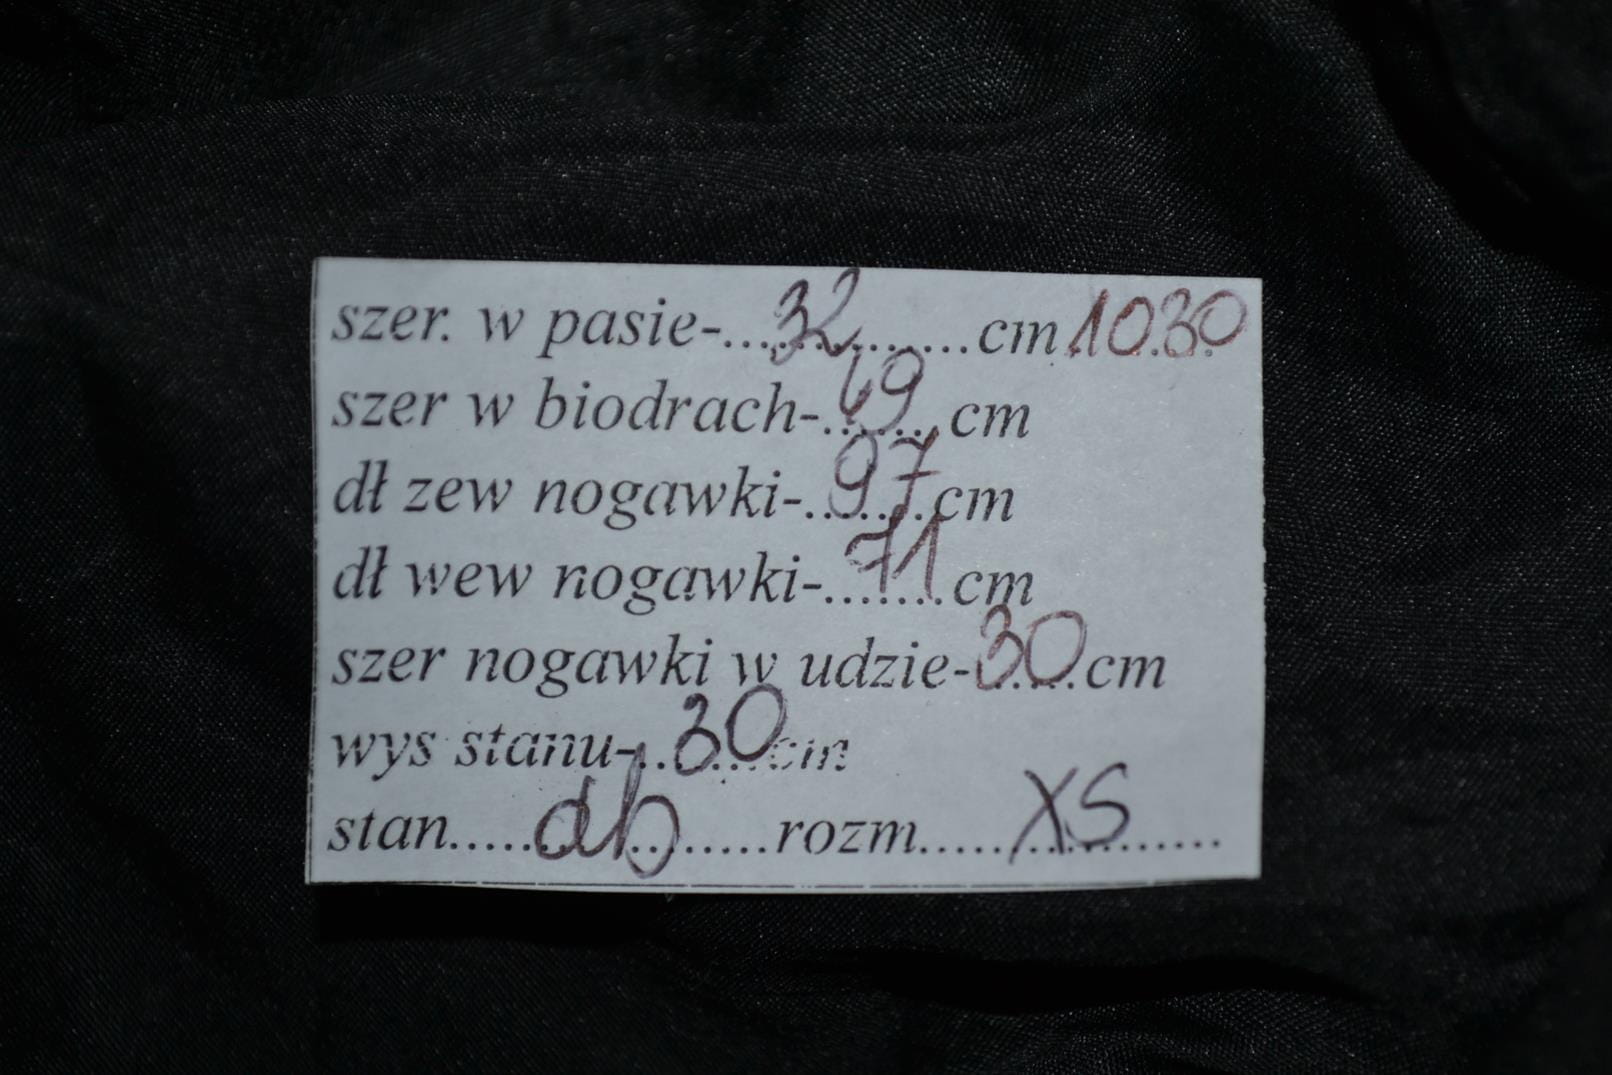 szer. w pasie-...32...........cm 1030
szer w biodrach-.49.....cm
dł zew nogawki-..97...cm
dł wew nogawki-..71...cm
szer nogawki w udzie-30..cm
wys stanu-..30...cm
stan.....db........rozm.....XS.......